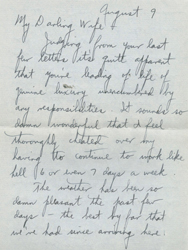 August 9
My Darling Wife &
Judging from your last
few letters it's quite apparent
that you're leading a life of
genuine luxury unencumbered by
any responsibilities. It sounds so
damn wonderful that I feel
thoroughly cheated over my
having to continue to work like
hell 6 or even 7 days a week.
The weather has been so
damn pleasant the past few
days - the best by far that
we've had since arriving here.